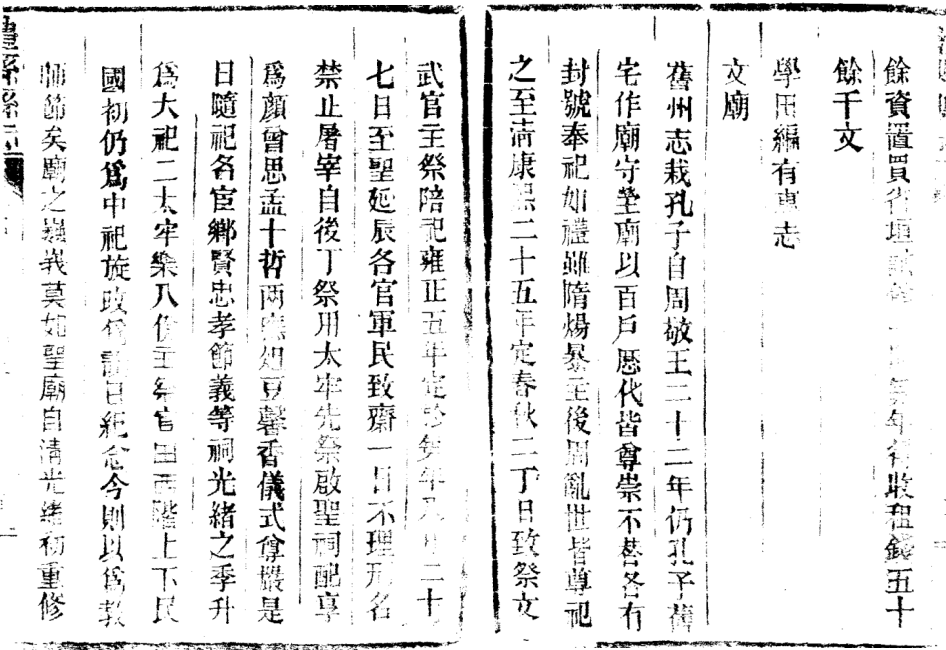 餘資置買省垣年得收租錢五十
餘千文
學田編有專志
文廟
舊州志栽孔子自周敬王二十二年仍孔子舊
宅作廟守塋廟以百戶歷代皆尊崇不替各有
封號奉祀如禮雖隋煬暴主後周亂世皆尊祀
之至清康熙二十五年定春秋二丁日致祭文
武官主祭陪祀雍正五年定於每年八月二十
七日至聖延辰各官軍民致齋一日不理刑名
禁止屠宰自後丁祭用太牢先祭啟聖祠配享
爲顏曾思孟十哲兩廡俎豆馨香儀式尊嚴是
日隨祀各宦鄉賢忠孝節義等祠光緒之季升
爲大祀二太牢樂八佾主祭官由西階上下民
國初仍爲中祀旋改爲誕日紀念今則以爲教
師節矣廟之巍峩莫如聖廟自清光緒初重修